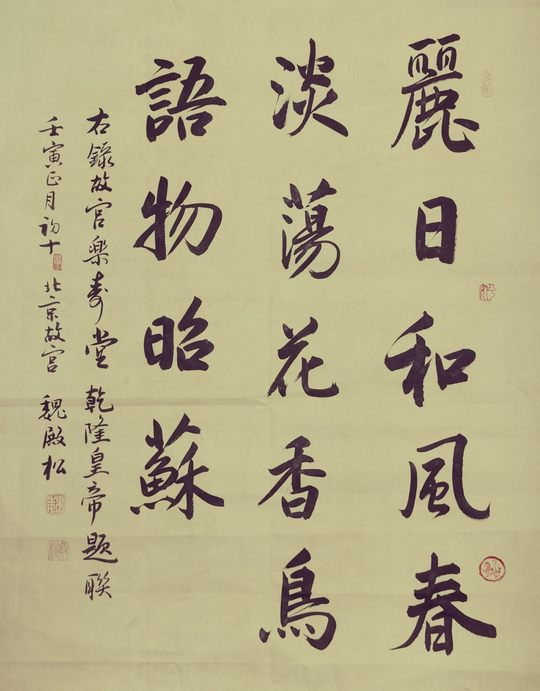 麗日和風春
淡蕩花香鳥
語物昭蘇
右錄故宮樂壽堂 乾隆皇帝題聯
壬寅正月初十 北京故宮 魏殿松